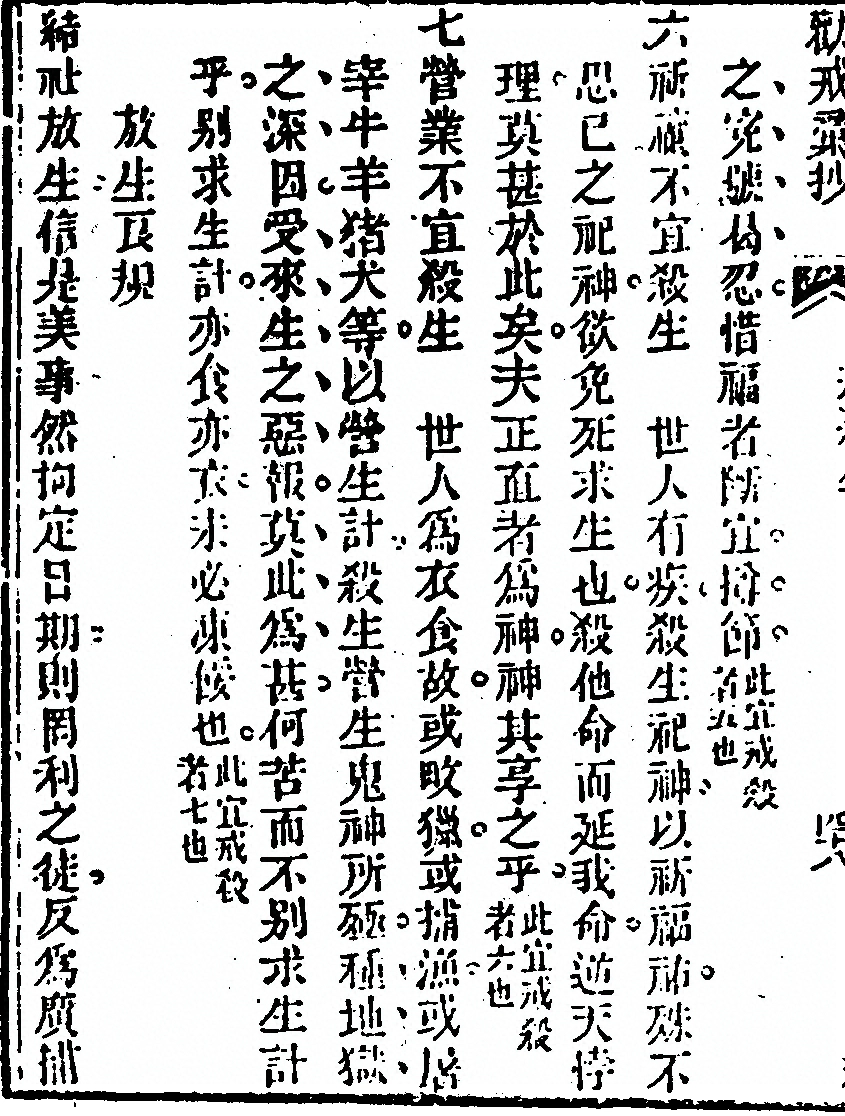 勸戒彙抄
之冤號曷忍惜福者所宜撙節此宜戒殺者五也
六祈禳不宜殺生　世人有疾殺生祀神以祈福祐殊不
思己之祀神欲免死求生也殺他命而延我命逆天悖
理莫甚於此矣夫正直者爲神神其享之乎此宜戒殺者六也
七營業不宜殺生　世人爲衣食故或畋獵或捕漁或屠
宰牛羊猪犬等以營生計殺生營生鬼神所殛種地獄
之深因受來生之惡報莫此爲甚何苦而不別求生計
乎別求生計亦食亦衣未必凍餒也此宜戒殺者七也
放生良規
結社放生信是美事然拘定日期則罔利之徒反爲廣捕